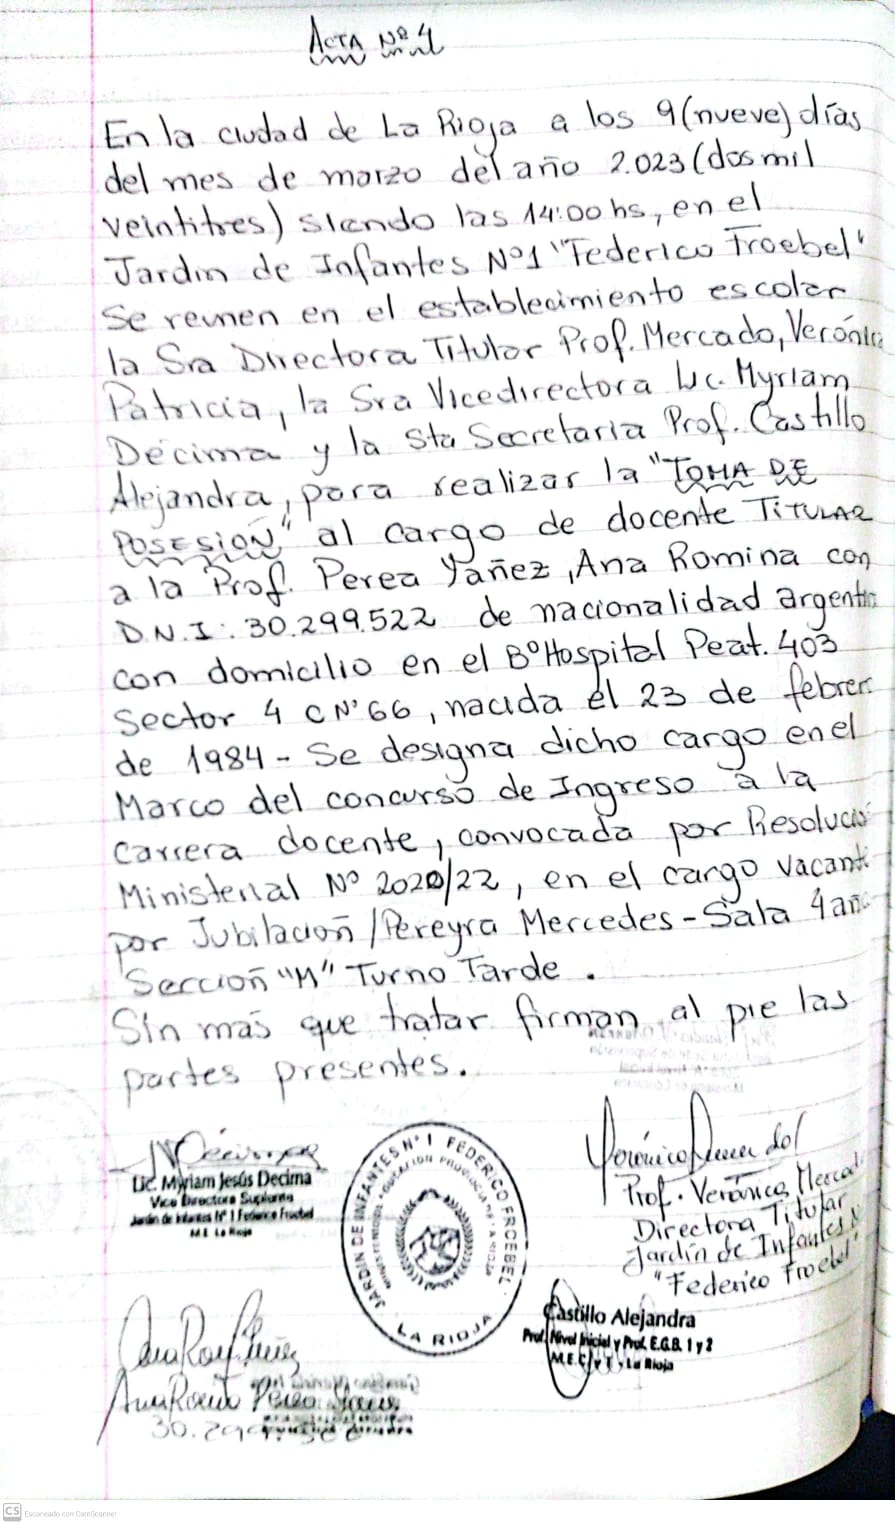 ACTA Nº 4
En la ciudad de La Rioja a los 9 (nueve) días
del mes de marzo del año 2.023 (dos mil
veintitres) siendo las 14:00 hs, en el
Jardin de Infantes Nº1 "Federico Froebel"
Se reunen en el establecimiento escolar
la Sra Directora Titular Prof. Mercado, Verónica
Patricia, la Sra Vicedirectora Lic. Myriam
Decima y la Sta Secretaria Prof. Castillo
Alejandra, para realizar la "TOMA DE
POSESIÓN" al cargo de docente TITULAR
a la Prof. Perea Yañez, Ana Romina con
D.N.I: 30.299.522 de nacionalidad argentin
con domicilio en el Bº Hospital Peat. 403
Sector 4 C Nº 66, nacida el 23 de febrer
de 1984 - Se designa dicho cargo en el
Marco del concurso de Ingreso a la
Carrera docente, convocada por Resolució
Ministerial Nº 2020/22, en el cargo vacant
por Jubilación / Pereyra Mercedes - Sala 4 año
Sección "M" Turno Tarde.
Sin más que tratar firman al pie las
partes presentes.
Lic. Myriam Jesús Decima
Vice Directora Suplente
Jardín de Infantes Nº 1 Federico Froebel
M.E. La Rioja
JARDIN DE INFANTES Nº 1 FEDERICO FROEBEL
LA RIOJA
Prof. Verónica Mercad
Directora Titular
Jardín de Infantes
"Federico Froebel"
Castillo Alejandra
Prof. Nivel Inicial y Prof. E.G.B. 1 y 2
M.E.C. y T - La Rioja
Ana Romina Perea Yañez
CS Escaneado con CamScanner